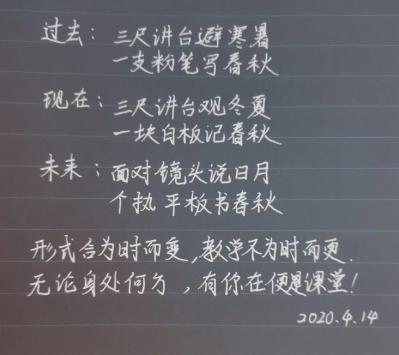 过去：三尺讲台避寒暑
一支粉笔写春秋
现在：三尺讲台观冬夏
一块白板记春秋
未来：面对镜头说日月
个执平板书春秋
形式合为时而变，教学不为时而更.
无论身处何方，有你在便是课堂！
2020.4.14